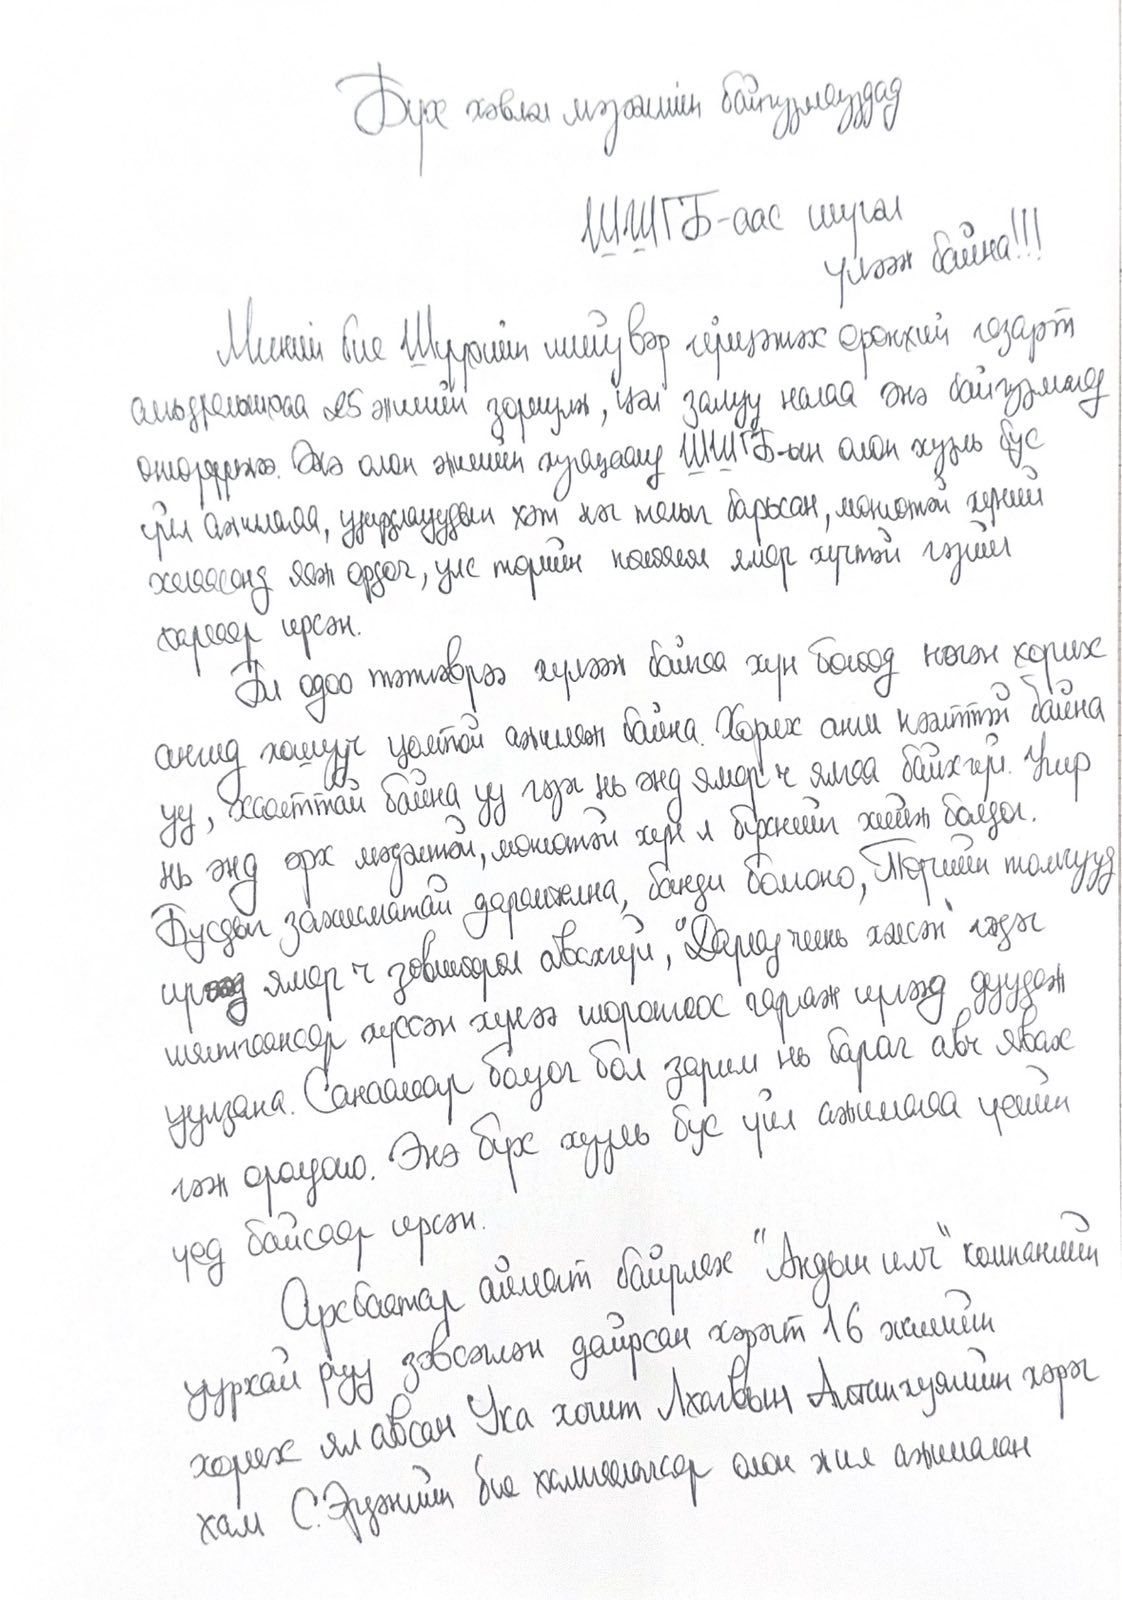 Бүх хэвлэл мэдээллийн байгууллагуудад
ШШГБ-аас шууд
хүлээж байна!!!
Миний бие Шүүхийн шийдвэр гүйцэтгэх ерөнхий газарт
амьдралынхаа 25 жилийг зориулж, цэл залуу насаа энэ байгууллагад
өнгөрүүлжээ. Энэ олон жилийн хугацаанд ШШГБ-ын олон хууль бус
үйл ажиллагаа, удирдлагуудын хэт нэг талыг барьсан, мөнгөтэй хүний
халаасанд яаж ордог, улс төрийн нөлөөлөл ямар хүчтэй гэдгийг
харсаар ирсэн.
Би одоо тэтгэврээ хүлээж байгаа хүн бөгөөд нэгэн хорих
ангид хошууч цолтой ажиллаж байна. Хорих анги нээлттэй байна
уу, хаалттай байна уу гэх нь энд ямар ч ялгаа байхгүй. Учир
нь энд эрх мэдэлтэй, мөнгөтэй хүн л бүхнийг хийж болдог.
Бусдыг захиалгатай дарамтална, банди болгоно, Төрийн томчууд
ирээд ямар ч зөвшөөрөл авахгүй, "Дарга чинь хэлсэн" гэдэг
шалтгаанаар хүссэн хүнээ шоронгоос гаргаж ирээд дуудаж
уулзана. Санаагаар болдог бол зарим нь бараг авч явах
гэж оролдоно. Энэ бүх хууль бус үйл ажиллагаа үеийн
үед байсаар ирсэн.
Архбаатар аймагт байрлах "Андын илч" компанийн
уурхай руу зэвсэглэн дайрсан хэрэгт 16 жилийн
хорих ял авсан Ука хочит Лхагвын Алтанхуягийн хэрэг
хам С.Эрдэнийн бие хамгаалагчаар олон жил ажилласан